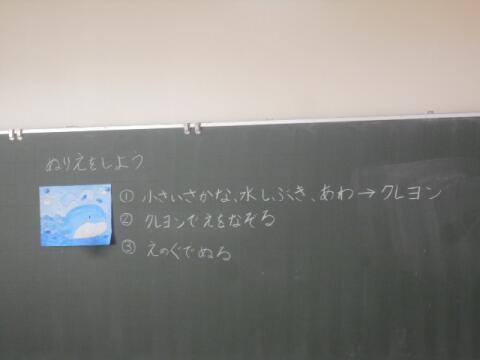 ぬりえをしよう
① 小さいさかな、水しぶき、あわ→クレヨン
② クレヨンでえをなぞる
③ えのぐでぬる